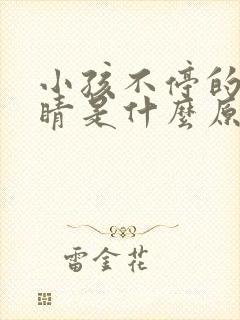 小孩不停的
睛是什麼原
雷金花